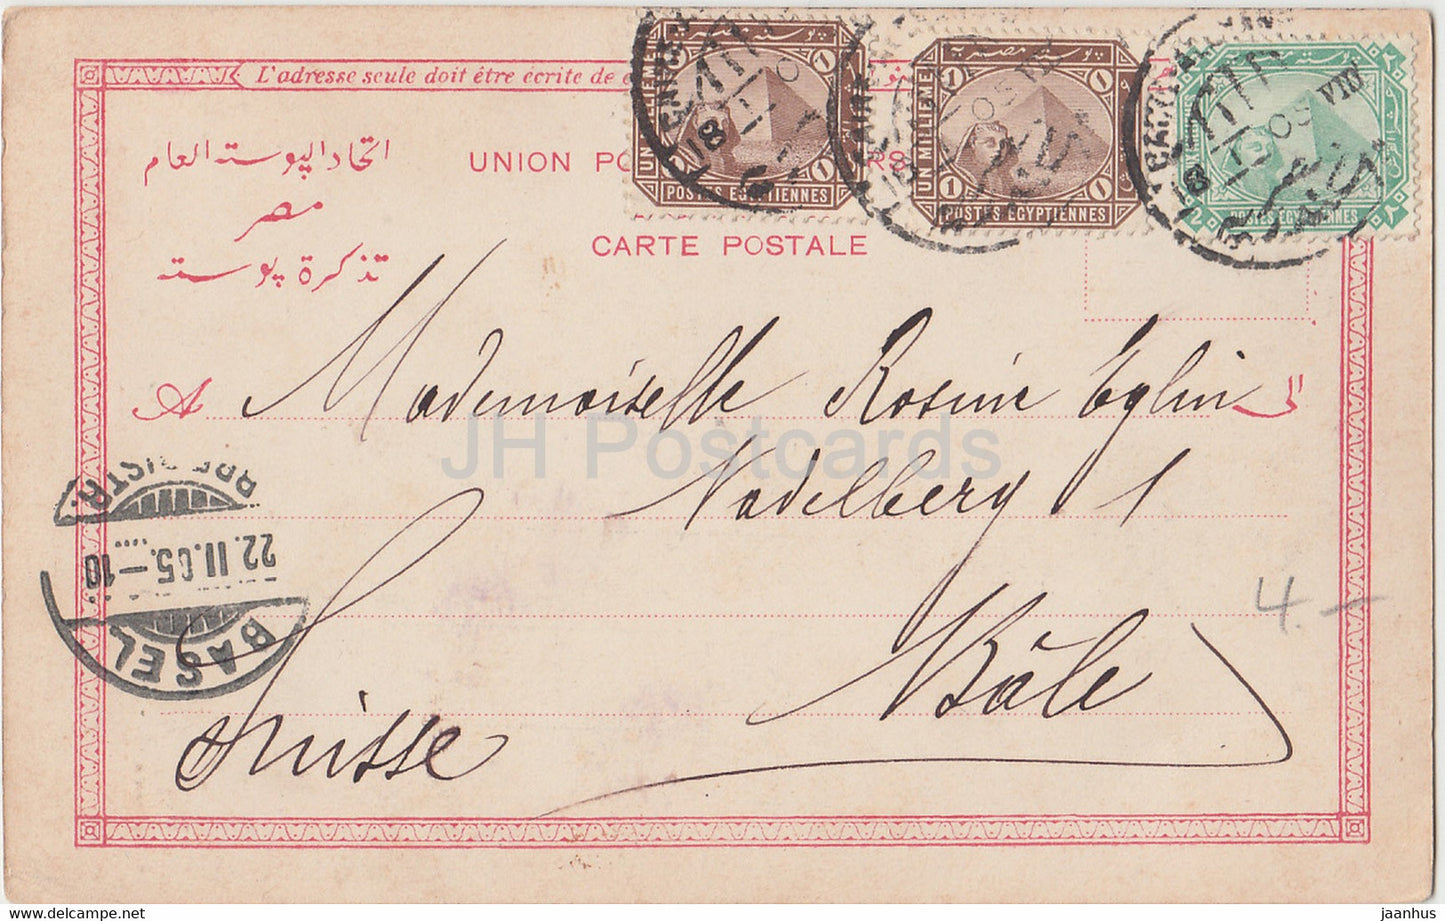 L'adresse seule doit être écrite de
اتحاد البوسته العام
مصر
تذكرة بوسته
UNION PO
CARTE POSTALE
UN MILLIEME
POSTES EGYPTIENNES
بوسته مصريه
UN MILLIEME
POSTES EGYPTIENNES
POSTES EGYPTIENNES
A Mademoiselle Rosine Eglin
Nadelberg 1
Bâle
Suisse
BASEL
22.II.05.–10
4.–
JH Postcards
https://www.delcampe.net
jaanhus